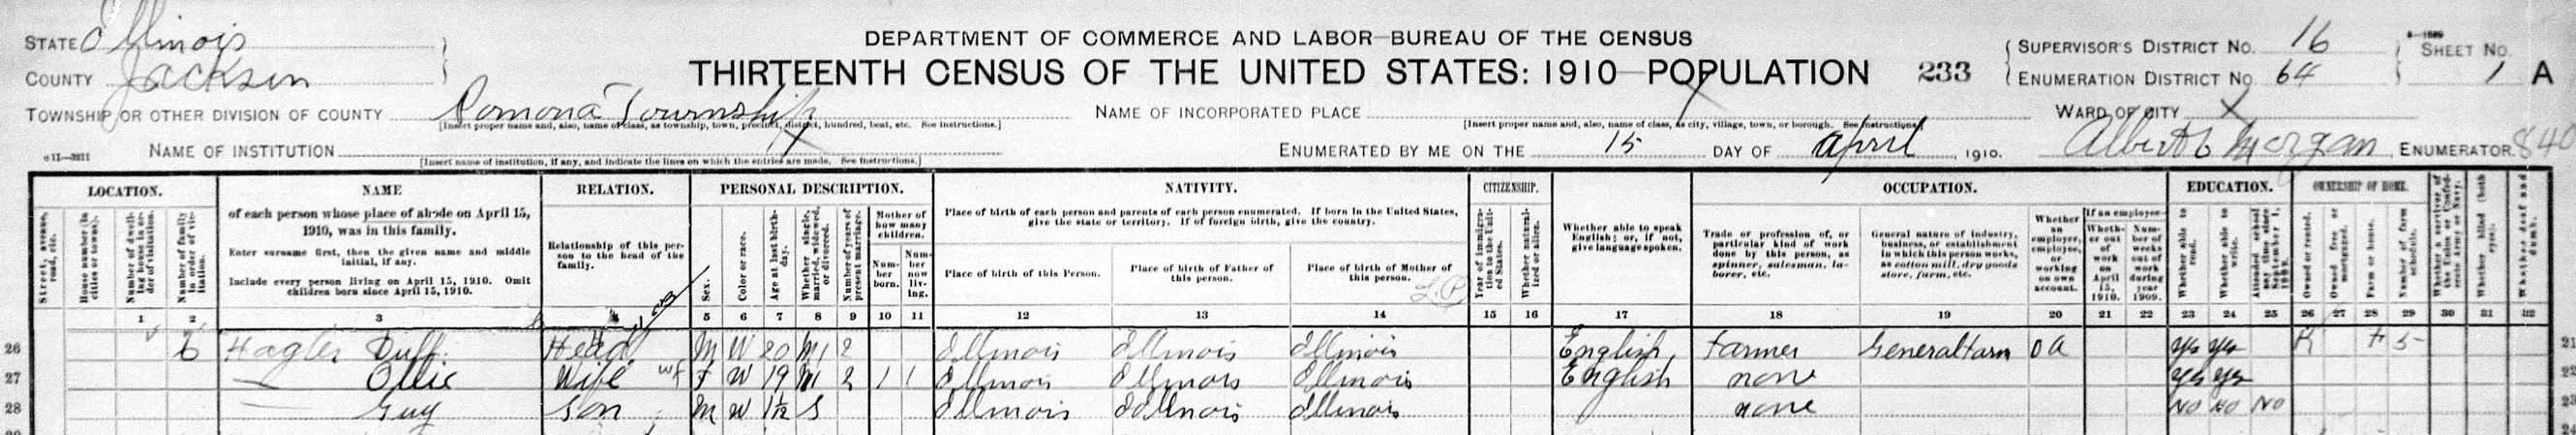 STATE Illinois
COUNTY Jackson
DEPARTMENT OF COMMERCE AND LABOR—BUREAU OF THE CENSUS
THIRTEENTH CENSUS OF THE UNITED STATES: 1910—POPULATION
233
SUPERVISOR'S DISTRICT NO. 16
ENUMERATION DISTRICT NO. 64
SHEET NO.
1 A
TOWNSHIP OR OTHER DIVISION OF COUNTY Pomona Township
[Insert proper name and, also, name of class, as township, town, precinct, district, hundred, beat, etc. See instructions.]
NAME OF INCORPORATED PLACE X
[Insert proper name and, also, name of class, as city, village, town, or borough. See instructions.]
WARD OF CITY X
NAME OF INSTITUTION X
[Insert name of institution, if any, and indicate the lines on which the entries are made. See instructions.]
ENUMERATED BY ME ON THE 15 DAY OF April, 1910.
Morgan, ENUMERATOR. 840
LOCATION.
Street, avenue, road, etc.
House number (in cities or towns).
Number of dwelling house in order of visitation.
Number of family in order of visitation.
NAME
of each person whose place of abode on April 15, 1910, was in this family.
Enter surname first, then the given name and middle initial, if any.
Include every person living on April 15, 1910. Omit children born since April 15, 1910.
RELATION.
Relationship of this person to the head of the family.
PERSONAL DESCRIPTION.
Sex.
Color or race.
Age at last birthday.
Whether single, married, widowed, or divorced.
Number of years of present marriage.
Mother of how many children.
Number born.
Number now living.
NATIVITY.
Place of birth of each person and parents of each person enumerated. If born in the United States, give the state or territory. If of foreign birth, give the country.
Place of birth of this Person.
Place of birth of Father of this person.
Place of birth of Mother of this person.
CITIZENSHIP.
Year of immigration to the United States.
Whether naturalized or alien.
Whether able to speak English; or, if not, give language spoken.
OCCUPATION.
Trade or profession of, or particular kind of work done by this person, as spinner, salesman, laborer, etc.
General nature of industry, business, or establishment in which this person works, as cotton mill, dry goods store, farm, etc.
Whether an employer, employee, or working on own account.
If an employee—
Whether out of work on April 15, 1910.
Number of weeks out of work during year 1909.
EDUCATION.
Whether able to read.
Whether able to write.
Attended school any time since September 1, 1909.
OWNERSHIP OF HOME.
Owned or rented.
Owned free or mortgaged.
Farm or house.
Number of farm schedule.
Whether a survivor of the Union or Confederate Army or Navy.
Whether blind (both eyes).
Whether deaf and dumb.
1 2 3 4 5 6 7 8 9 10 11 12 13 14 15 16 17 18 19 20 21 22 23 24 25 26 27 28 29 30 31 32
26 6 Hagler Duff Head M W 20 M1 2 Illinois Illinois Illinois English Farmer General Farm OA yes yes R F 5 21
27 — Ollie Wife F W 19 M1 2 1 1 Illinois Illinois Illinois English none yes yes 22
28 — Guy Son M W 1/12 S Illinois Illinois Illinois none NO NO NO 23